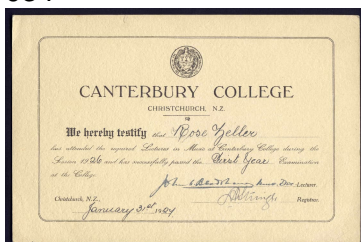 CANTERBURY COLLEGE
CHRISTCHURCH, N.Z.
We hereby testify that Rose Zeller
has attended the required Lectures in Music at Canterbury College during the
Session 1926 and has successfully passed the First Year Examination
at the College.
John Lecturer.
Christchurch, N.Z., Registrar.
January 31st 1927